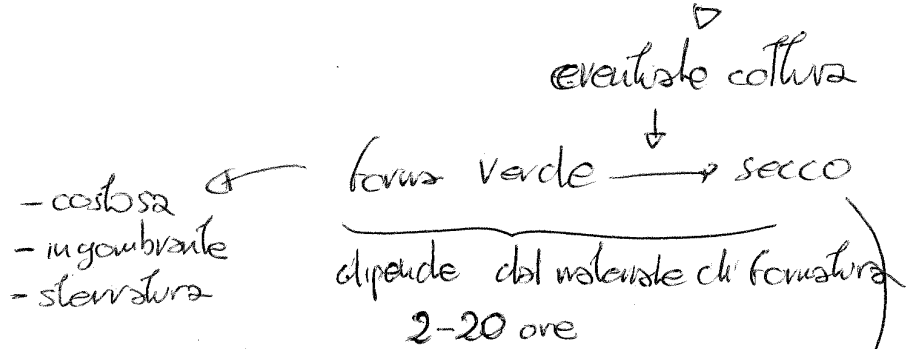 eventuale cottura
forma verde → secco
- costosa
- ingombrante
- sterratura
dipende dal materiale di formatura
2-20 ore